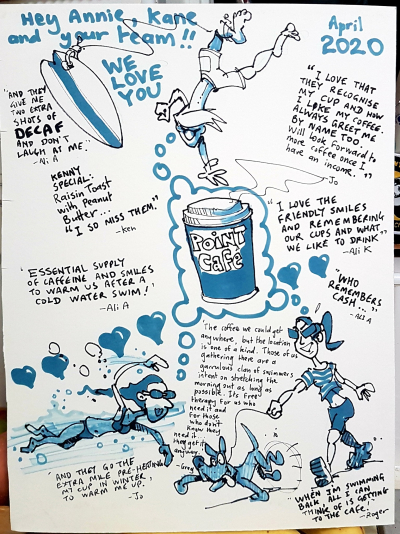 Hey Annie, Kane
and your team!!
April
2020
WE
LOVE
YOU
"AND THEY
GIVE ME
TWO EXTRA
SHOTS OF
DECAF
AND DON'T
LAUGH AT ME."
- Ali A
"I LOVE THAT
THEY RECOGNISE
MY CUP AND HOW
I LIKE MY COFFEE.
ALWAYS GREET ME
BY NAME TOO.
Will look forward to
more coffee once I
have an income."
-Jo
KENNY
SPECIAL:
Raisin Toast
with Peanut
Butter...
"I SO MISS THEM."
-ken
POINT
CAFE
"I LOVE THE
FRIENDLY SMILES
AND REMEMBERING
OUR CUPS AND WHAT
WE LIKE TO DRINK"
-Ali K
"ESSENTIAL SUPPLY
OF CAFFEINE AND SMILES
TO WARM US AFTER A
COLD WATER SWIM!"
-Ali A
"WHO
REMEMBERS
CASH..."
The coffee we could get
anywhere, but the location
is one of a kind. Those of us
gathering there are a
garrulous clan of swimmers
intent on stretching the
morning out as long as
possible. Its free
therapy for us who
need it and
for those
who don't
know they
need it
they get it
anyway.
-Greg
"AND THEY GO THE
EXTRA MILE PRE-HEATING
MY CUP IN WINTER
TO WARM ME UP."
-Jo
"WHEN I'M SWIMMING
BACK ALL I CAN
THINK OF IS GETTING
TO THE CAFE!"
-Roger